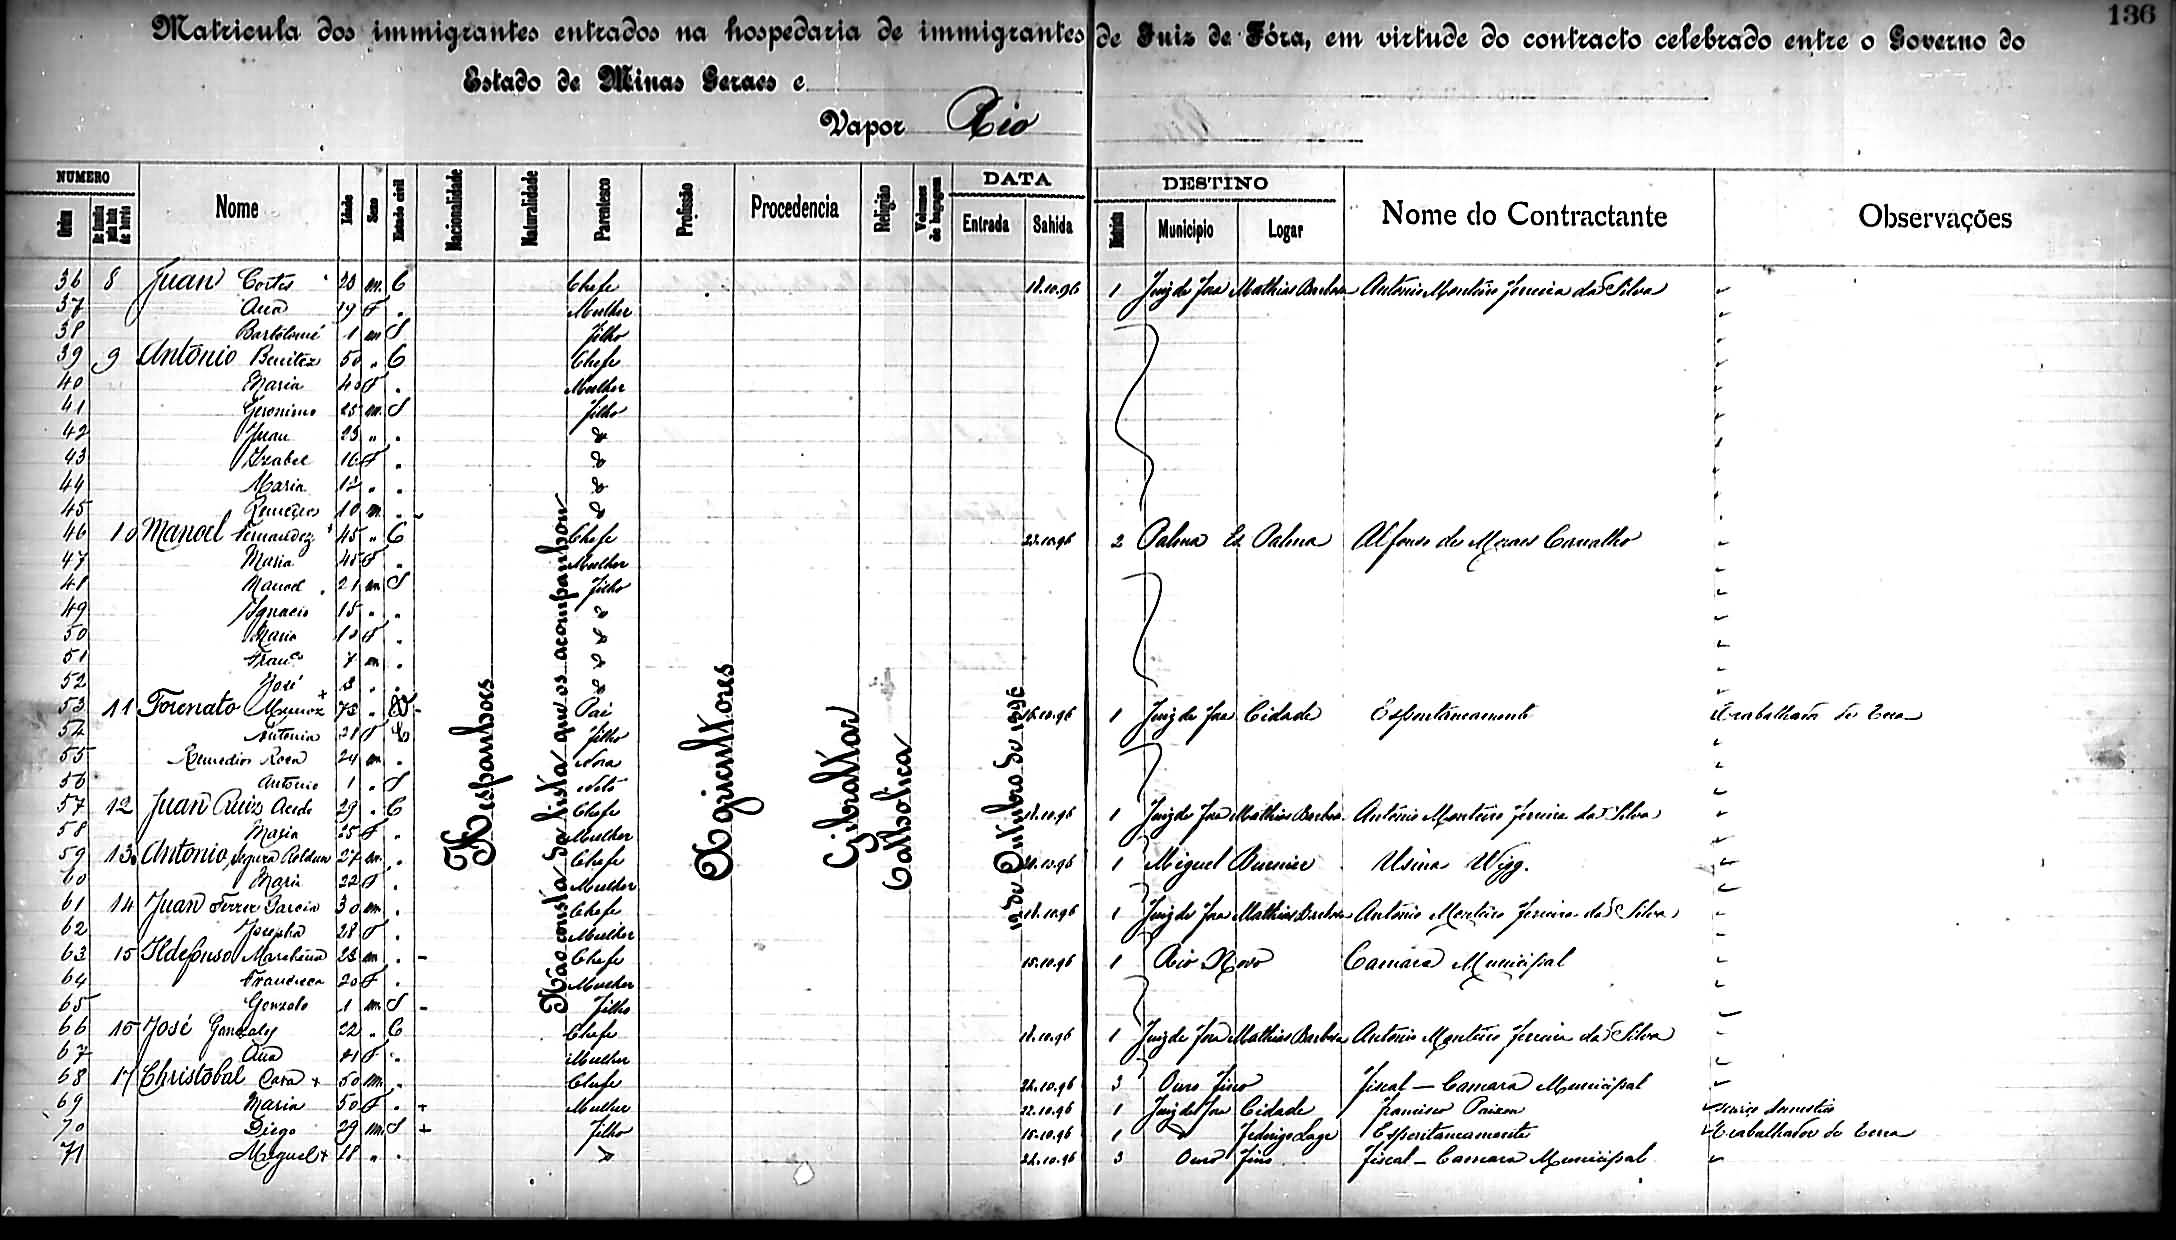 136
Matricula dos immigrantes entrados na hospedaria de immigrantes de Juiz de Fóra, em virtude do contracto celebrado entre o Governo do
Estado de Minas Geraes e
Vapor Rio
NUMERO DATA DESTINO
Ordem Nome Idade Sexo Estado civil Nacionalidade Naturalidade Parentesco Profissão Procedencia Religião Volumes de bagagem Entrada Sahida Municipio Logar Nome do Contractante Observações
Hespanhoes
Não consta da lista que os acompanhou
Agricultores
Gibraltar
Catholica
12 de Outubro de 1896
36 8 Juan Cortes 23 m. C Chefe 18.10.96 1 Juiz de Fora Mathias Barbosa Antonio Monteiro Ferreira da Silva
37 Ana 19 F " Mulher
38 Bartolomé 1 m S Filho
39 9 Antonio Benitez 50 " C Chefe
40 Maria 40 F " Mulher
41 Geronimo 25 m. S Filho
42 Juan 23 " "
43 Izabel 16 F "
44 Maria 12 " "
45 Remedios 10 m. "
46 10 Manoel Fernandez 45 " C Chefe 22.10.96 2 Palma Es. Palma Affonso de Moraes Carvalho
47 Maria 45 F " Mulher
48 Manoel 21 m S Filho
49 Ignacio 15 " "
50 Maria 10 F "
51 Franco 7 m "
52 José 3 " "
53 11 Fornato Munoz 73 " V Pai 16.10.96 1 Juiz de Fora Cidade Espontaneamente Trabalhador de terra
54 Antonia 21 F C Filho
55 Remedios Rosa 24 m " Nora
56 Antonio 1 " S Neto
57 12 Juan Ruiz Acedo 29 " C Chefe 18.10.96 1 Juiz de Fora Mathias Barbosa Antonio Monteiro Ferreira da Silva
58 Maria 25 F " Mulher
59 13 Antonio Segura Roldan 27 m. " Chefe 1 Miguel Burnier Usina Wigg.
60 Maria 22 F " Mulher
61 14 Juan Ferrer Garcia 30 m. " Chefe 18.10.96 1 Juiz de Fora Mathias Barbosa Antonio Monteiro Ferreira da Silva
62 Josepha 28 F " Mulher
63 15 Ildefonso 23 m " Chefe 15.10.96 1 Rio Novo Camara Municipal
64 Francisca 20 F " Mulher
65 Gonzalo 1 m. S Filho
66 16 José Gonzalez 22 " C Chefe 18.10.96 1 Juiz de Fora Mathias Barbosa Antonio Monteiro Ferreira da Silva
67 Ana 21 F " Mulher
68 17 Christobal Cara 50 m. " Chefe 22.10.96 3 Ouro Fino Fiscal - Camara Municipal
69 Maria 50 F " Mulher 22.10.96 1 Juiz de Fora Cidade Francisco Serviço domestico
70 Diego 29 m. S Filho 15.10.96 1 " Federigo Lage Espontaneamente Trabalhador de terra
71 Miguel 18 " " 22.10.96 3 Ouro Fino Fiscal - Camara Municipal